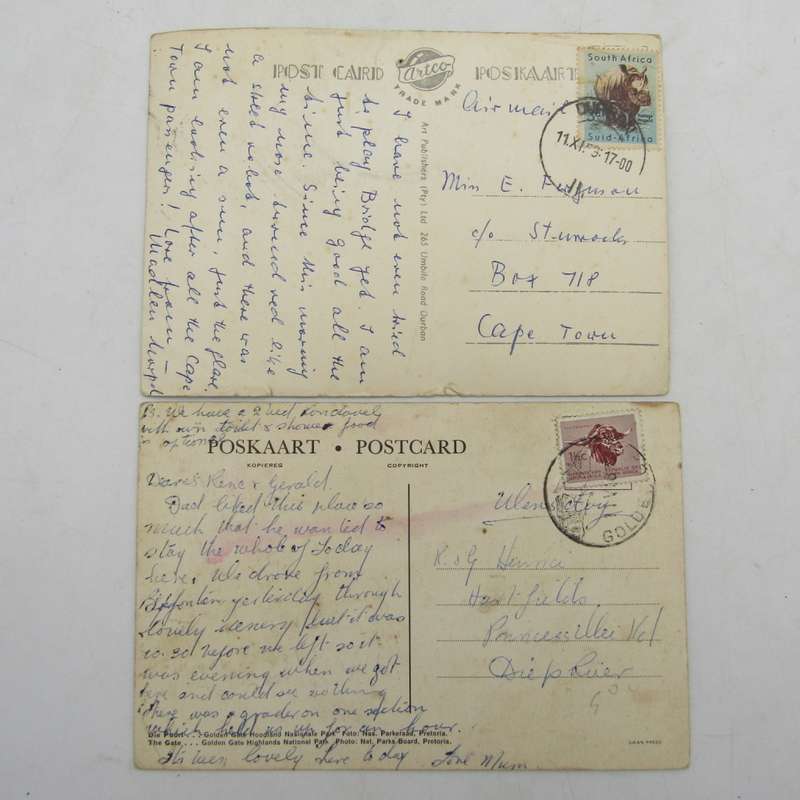 POST CARD
Artco
TRADE MARK
POSKAART
South Africa
Suid-Afrika
Air mail
11.XI.5 17-00
Art Publishers (Pty) Ltd 265 Umbilo Road Durban
I have not even tried
to play Bridge yet. I am
just being good all the
time. Since this morning
my nose turned red like
a street robot, and there was
not even a sun, just the glare.
I am looking after all the Cape
Town passengers! Love from —
Miss E. Ferguson
c/o Sturrocks
Box 718
Cape Town
P.S. We have a 2 bed, rondavel
with own toilet & shower food
is optional
POSKAART • POSTCARD
KOPIEREG
COPYRIGHT
1½c
GOLDE
Dearest Rene & Gerald.
Dad liked this place so
much that he wanted to
stay the whole of Today
here. We drove from
yesterday through
lovely scenery but it was
10.30 before we left so it
was evening when we got
here and could see nothing
There was a grader on one section
which held us up for an hour.
Its been lovely here today Love Mum.
R & G
Diep River
Die Poort . . . Golden Gate Hoogland Nasionale Park Foto: Nas. Parkeraad, Pretoria.
The Gate . . . Golden Gate Highlands National Park Photo: Nat. Parks Board, Pretoria.
SWAN PRESS